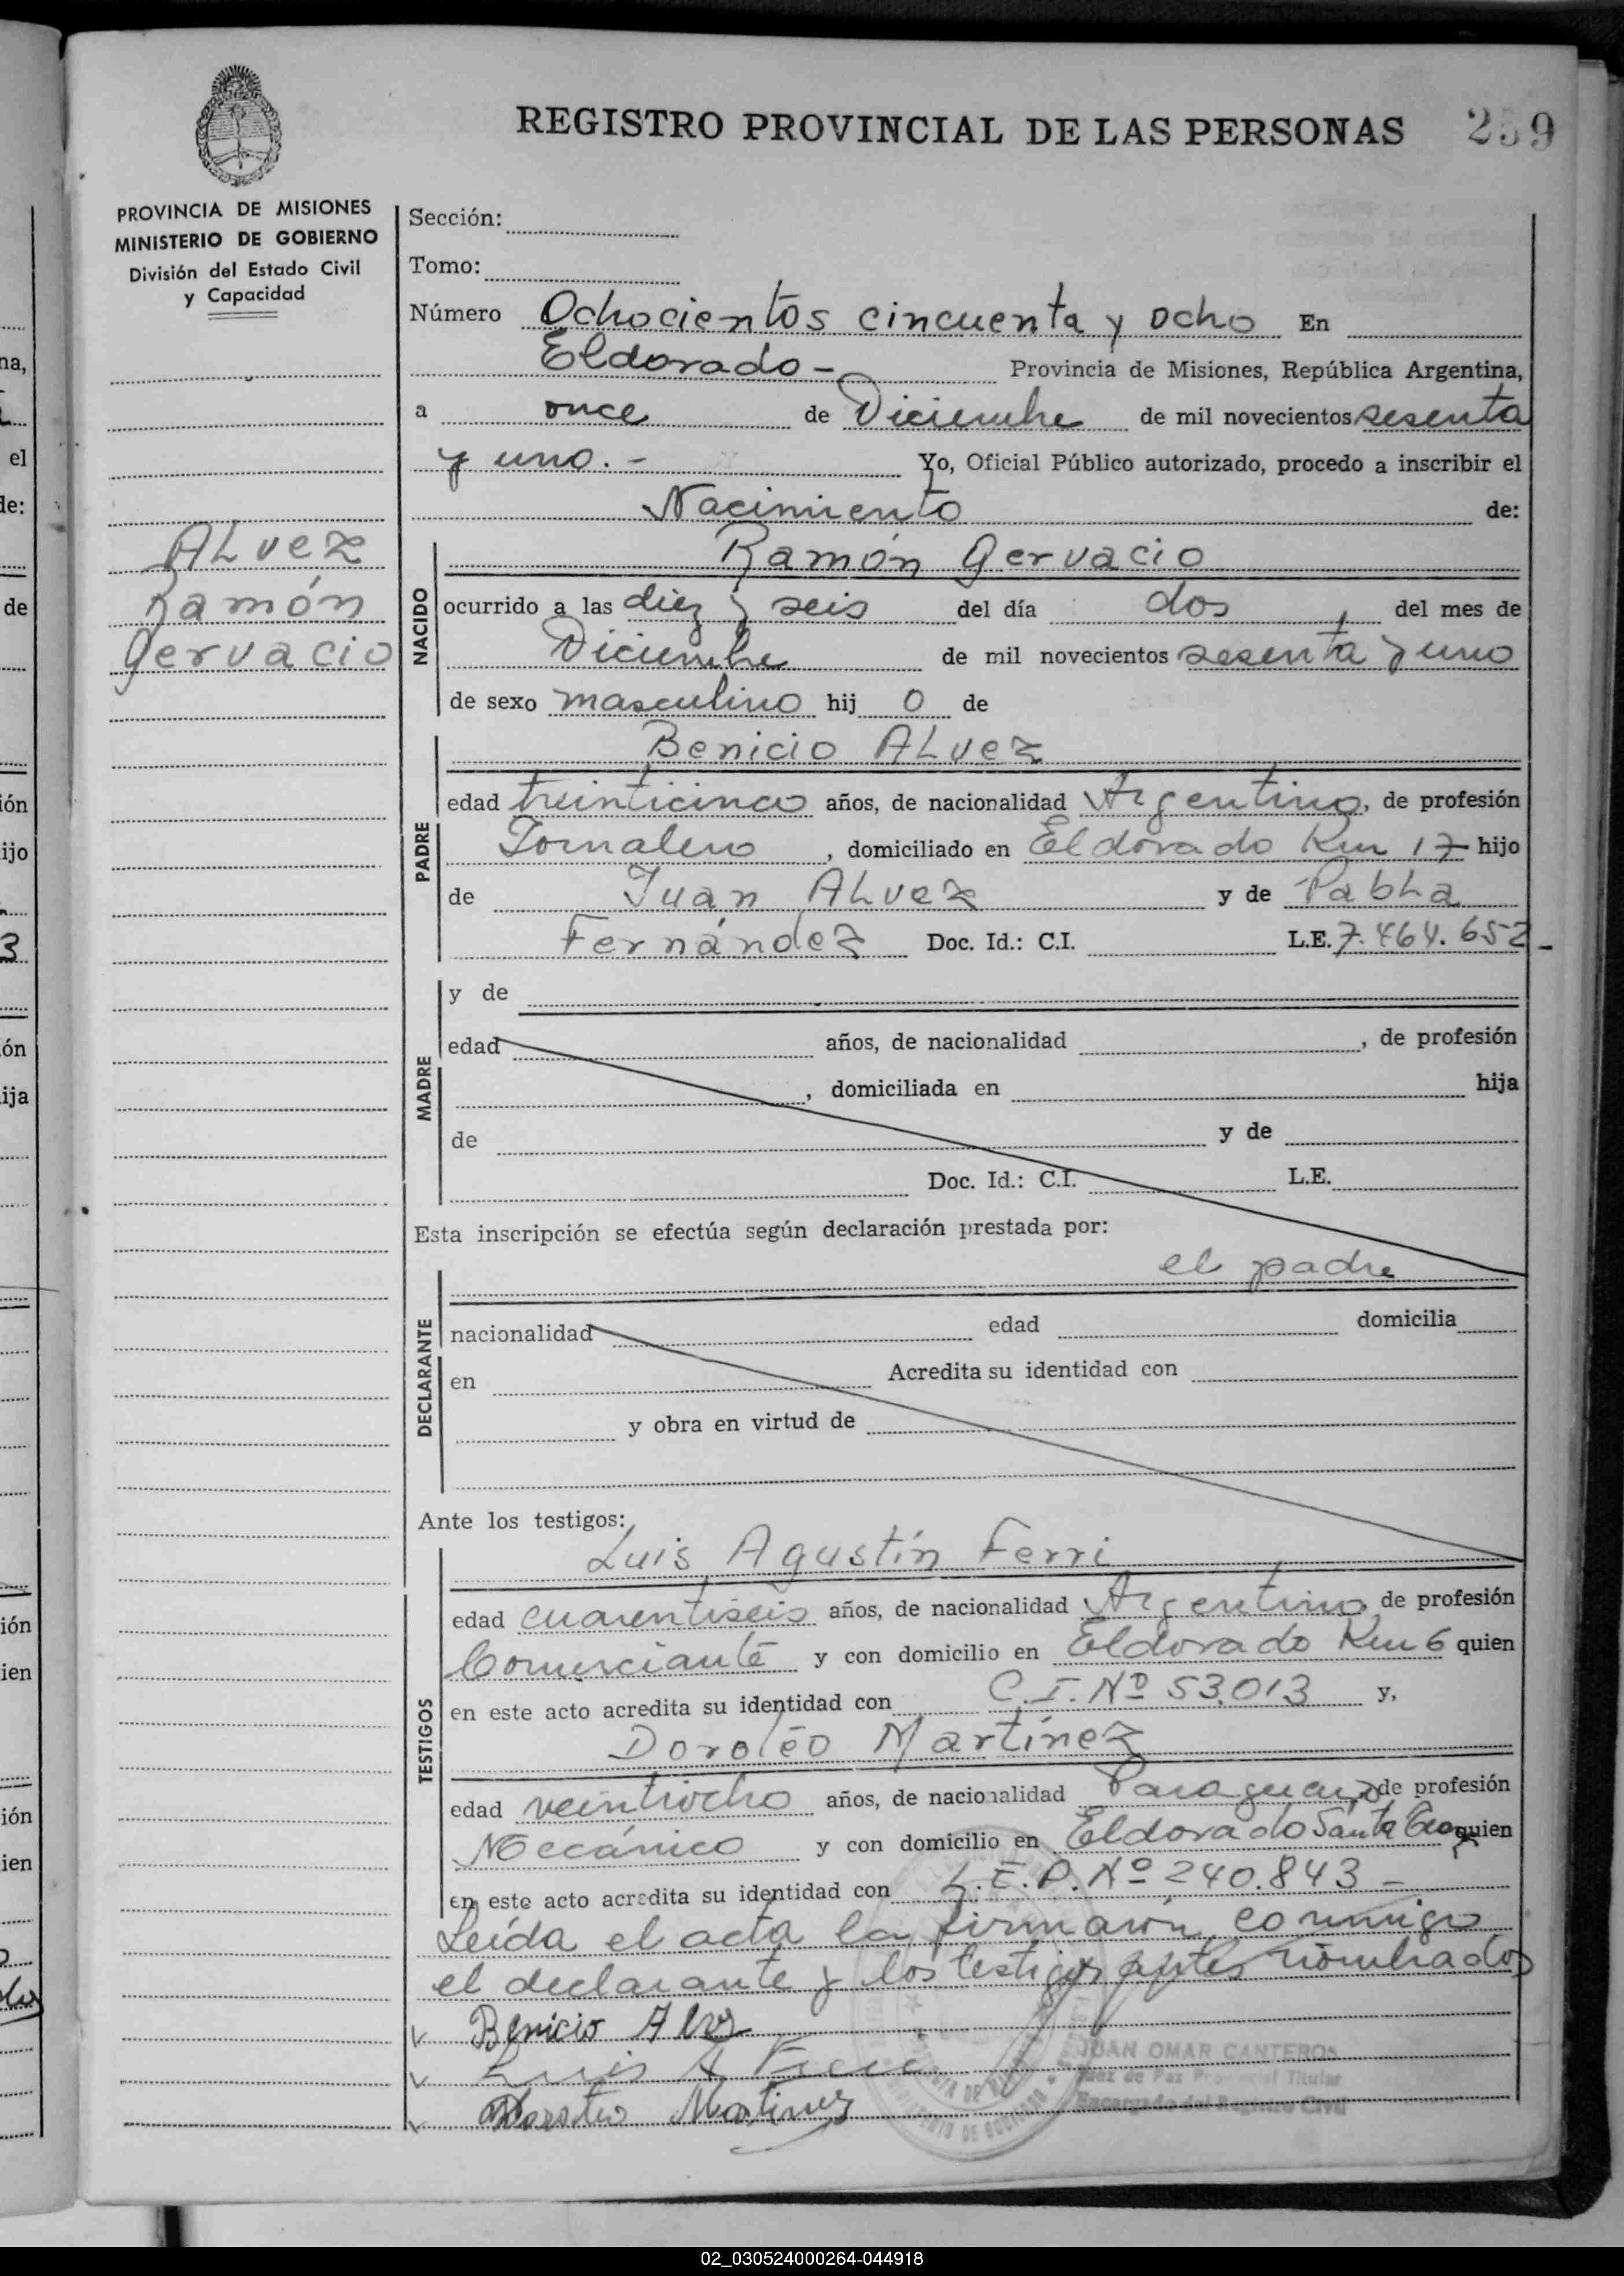 REGISTRO PROVINCIAL DE LAS PERSONAS 259
PROVINCIA DE MISIONES
MINISTERIO DE GOBIERNO
División del Estado Civil
y Capacidad
ALvez
Ramón
Gervacio
Sección:
Tomo:
Número Ochocientos cincuenta y ocho En
Eldorado - Provincia de Misiones, República Argentina,
a once de Diciembre de mil novecientos sesenta
y uno. - Yo, Oficial Público autorizado, procedo a inscribir el
Nacimiento de:
NACIDO
Ramón Gervacio
ocurrido a las diez y seis del día dos del mes de
Diciembre de mil novecientos sesenta y uno
de sexo masculino hij o de
PADRE
Benicio ALvez
edad treinticinco años, de nacionalidad Argentino, de profesión
Jornalero, domiciliado en Eldorado Km 17 hijo
de Juan ALvez y de Pabla
Fernández Doc. Id.: C.I. L.E. 7.464.652 -
MADRE
y de
edad años, de nacionalidad , de profesión
, domiciliada en hija
de y de
Doc. Id.: C.I. L.E.
Esta inscripción se efectúa según declaración prestada por:
el padre
DECLARANTE
nacionalidad edad domicilia
en Acredita su identidad con
y obra en virtud de
Ante los testigos:
TESTIGOS
Luis Agustín Ferri
edad cuarentiseis años, de nacionalidad Argentino, de profesión
Comerciante y con domicilio en Eldorado Km 6 quien
en este acto acredita su identidad con C.I. Nº 53.013 y,
Doroteo Martínez
edad veintiocho años, de nacionalidad Paraguayo de profesión
Mecánico y con domicilio en Eldorado Santa quien
en este acto acredita su identidad con Nº 240.843 -
Leída el acta la firmaron conmigo
el declarante y los testigos antes nombrados
Benicio Alvez
Luis A Ferri
Doroteo Martinez
JUAN OMAR CANTEROS
Juez de Paz Provincial Titular
Encargado del Registro Civil
na,
el
de:
de
ión
ijo
3
ón
ija
ión
ien
ión
ien
02_030524000264-044918